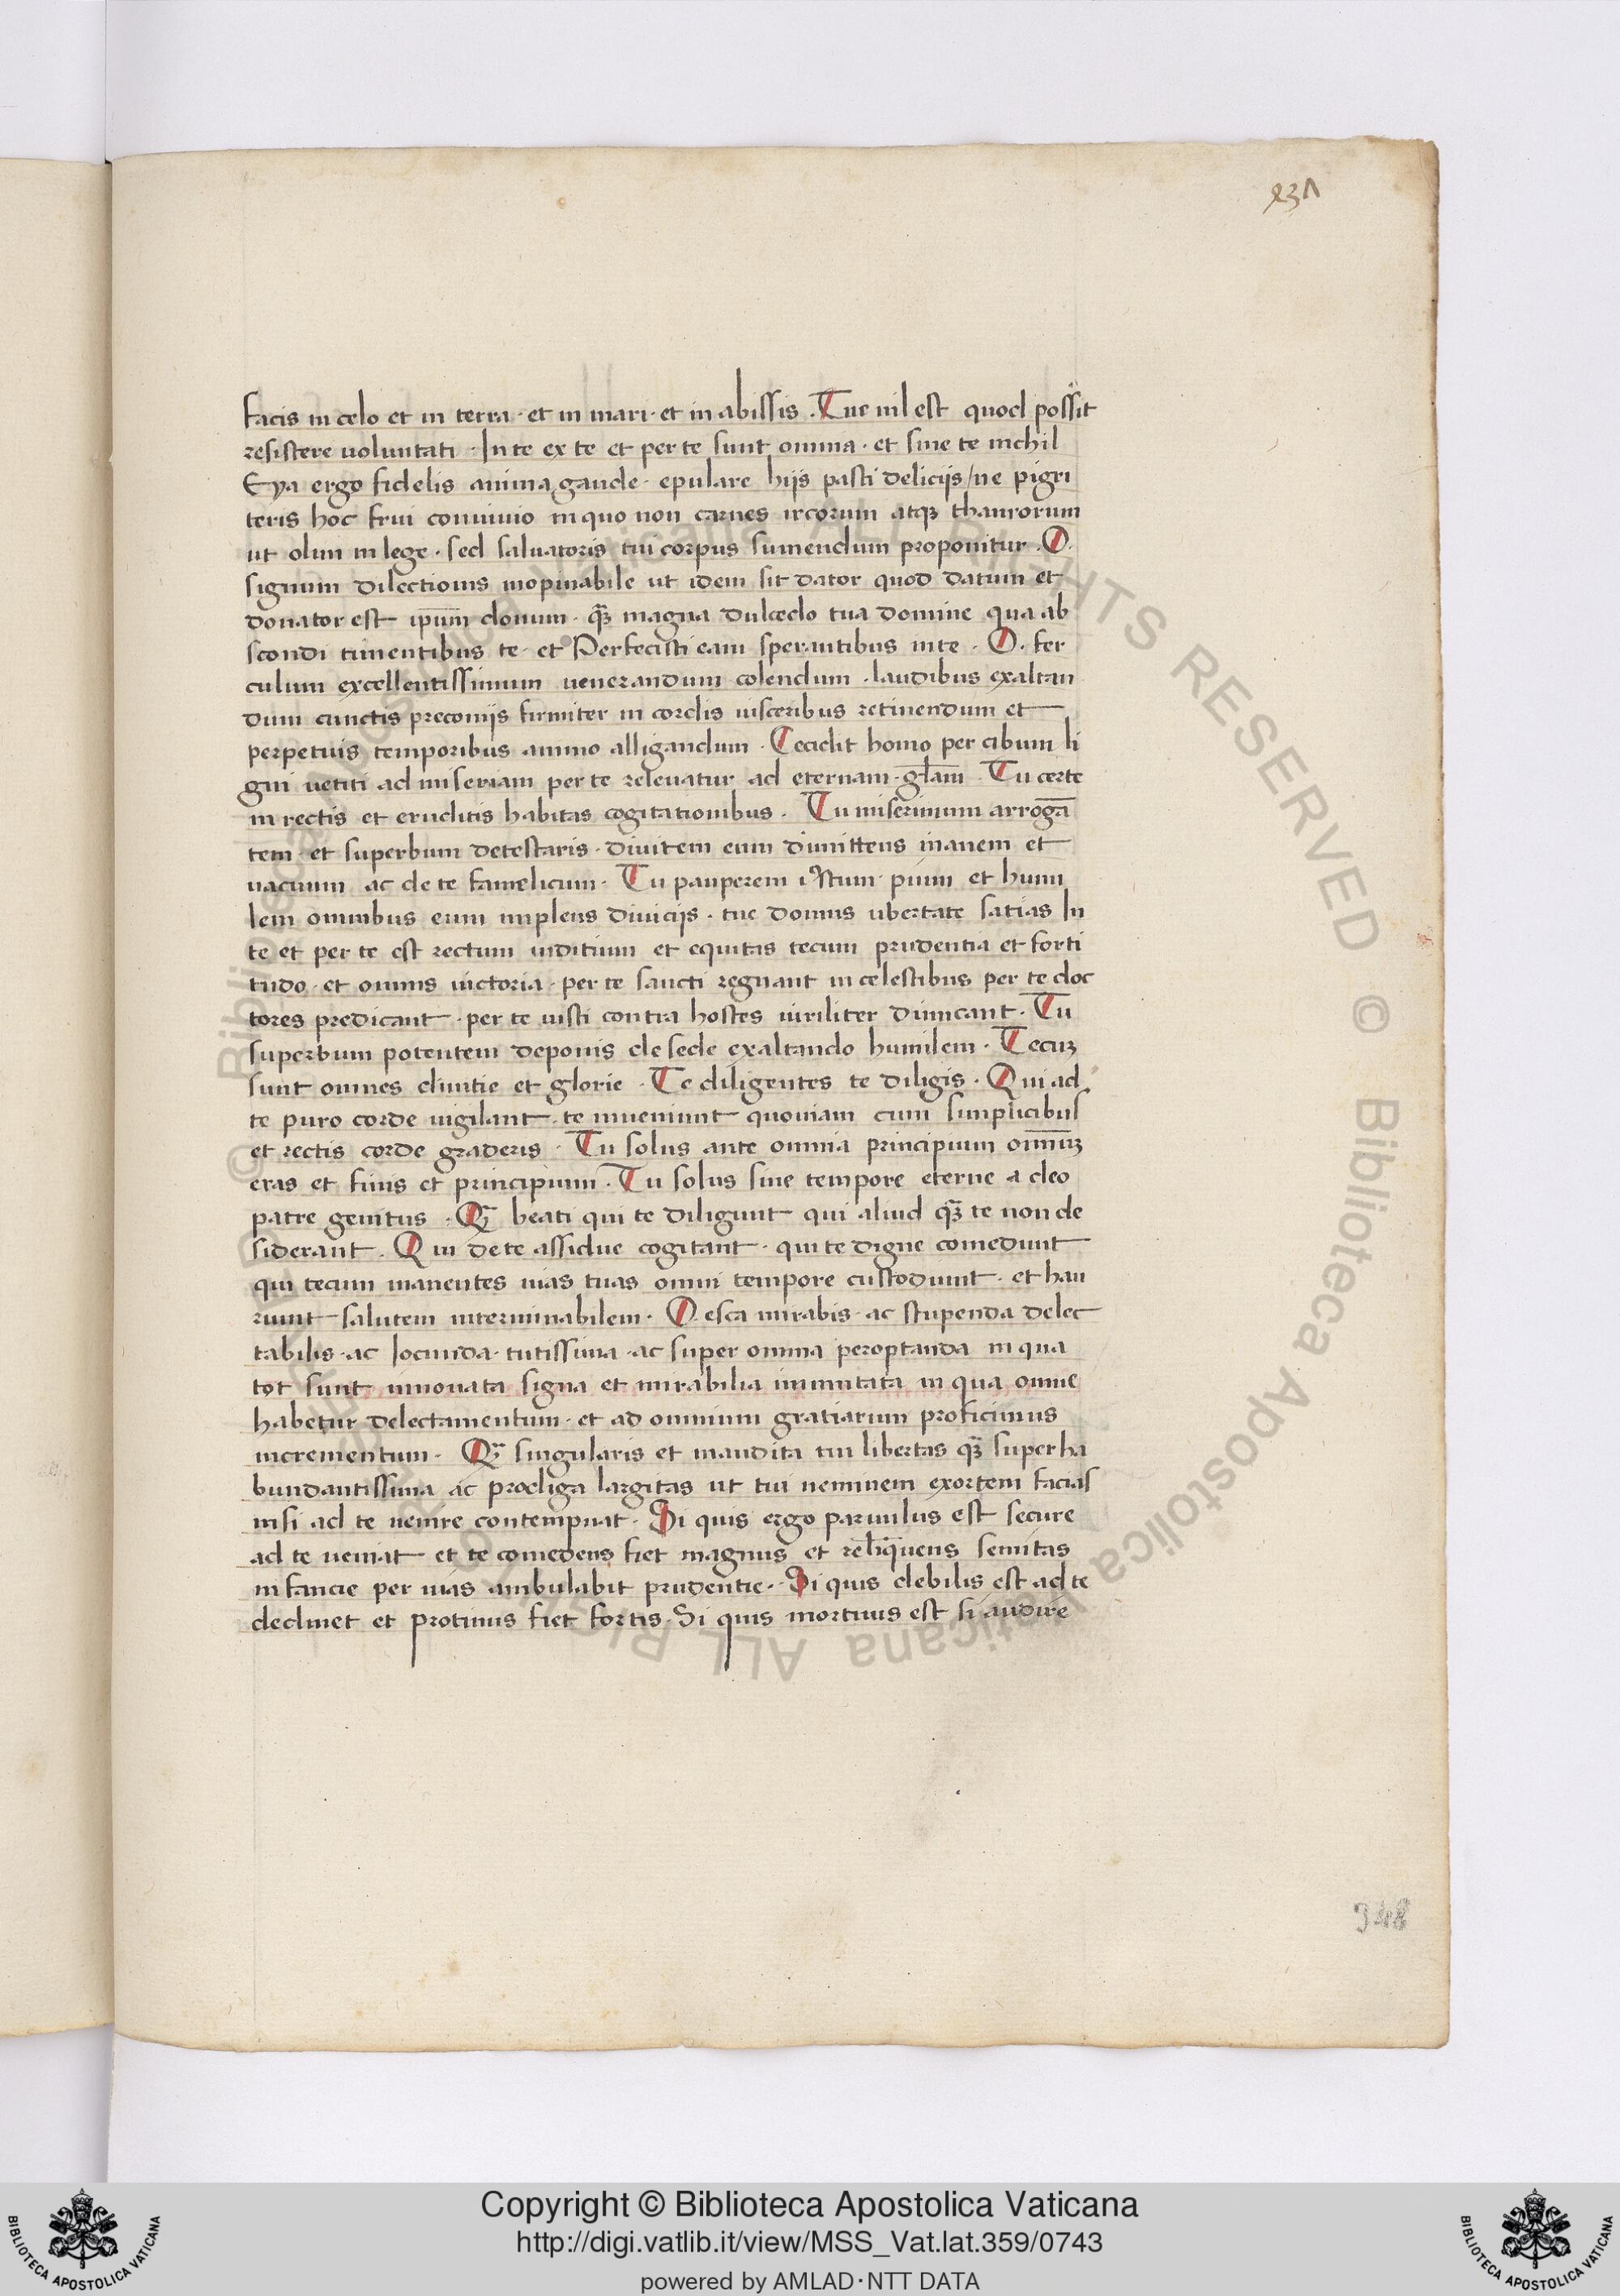 231
facis in celo et in terra · et in mari · et in abissis . Tue nil est quod possit
resistere uoluntati · In te ex te et per te sunt omnia · et sine te nichil
Eya ergo fidelis anima gaude · epulare hijs pasti delicijs / ne pigri
teris hoc frui conuiuio in quo non carnes ircorum atqꝫ thaurorum
ut olim in lege · sed saluatoris tui corpus sumendum proponitur . O .
signum dilectionis inopinabile ut idem sit dator quod datum et
donator est ip̄um donum · qꝫ̄ magna dulcedo tua domine qua ab
scondi timentibus te · et Perfecisti eam sperantibus in te · O . fer
culum excellentissimum uenerandum colendum · laudibus exaltan
dum cunctis preconijs firmiter in cordis uisceribus retinendum et
perpetuis temporibus animo alligandum · Cecidit homo per cibum li
gni uetiti ad miseriam per te releuatur ad eternam · gl̄am · Tu certe
in rectis et eruditis habitas cogitationibus . Tu miserimum arrogā
tem · et superbum detestaris · diuitem eum dimittens inanem et
uacuum ac de te famelicum · Tu pauperem istum pium et humi
lem omnibus eum implens diuicijs · tue domus ubertate satias In
te et per te est rectum iuditium et equitas tecum prudentia et forti
tudo · et omnis uictoria · per te sancti regnant in celestibus per te doc
tores predicant · per te iusti contra hostes uiriliter dimicant · Tu
superbum potentem deponis de sede exaltando humilem · Tecuꝫ
sunt omnes diuitie et glorie · Te diligentes te diligis · Qui ad
te puro corde uigilant · te inueniunt quoniam cum simplicibus
et rectis corde graderis · Tu solus ante omnia principium omn̄iuꝫ
eras et finis et principium · Tu solus sine tempore eterne a deo
patre genitus · Qꝫ̄ beati qui te diligunt qui aliud qꝫ̄ te non de
siderant . Qui de te assidue cogitant · qui te digne comedunt
qui tecum manentes uias tuas omni tempore custodiunt · et hau
riunt salutem interminabilem · O esca mirabis · ac stupenda delec
tabilis · ac Jocunda · tutissima · ac super omnia peroptanda in qua
tot sunt innouata signa et mirabilia inmutata in qua omne
habetur delectamentum · et ad omnium gratiarum proficimus
incrementum · Qꝫ̄ singularis et inaudita tui libertas qꝫ̄ superha
bundantissima ac prodiga largitas ut tui neminem exortem facias
nisi ad te uenire contempnat · Si quis ergo paruulus est secure
ad te ueniat et te comedens fiet magnus et relīquens semitas
infancie per uias ambulabit prudentie · Si quis debilis est ad te
declinet et protinus fiet fortis · Si quis mortuus est si audire
348
© Biblioteca Apostolica Vaticana ALL RIGHTS RESERVED © Biblioteca Apostolica Vaticana ALL RIGHTS RESERVED
BIBLIOTECA APOSTOLICA VATICANA
Copyright © Biblioteca Apostolica Vaticana
http://digi.vatlib.it/view/MSS_Vat.lat.359/0743
powered by AMLAD·NTT DATA
BIBLIOTECA APOSTOLICA VATICANA